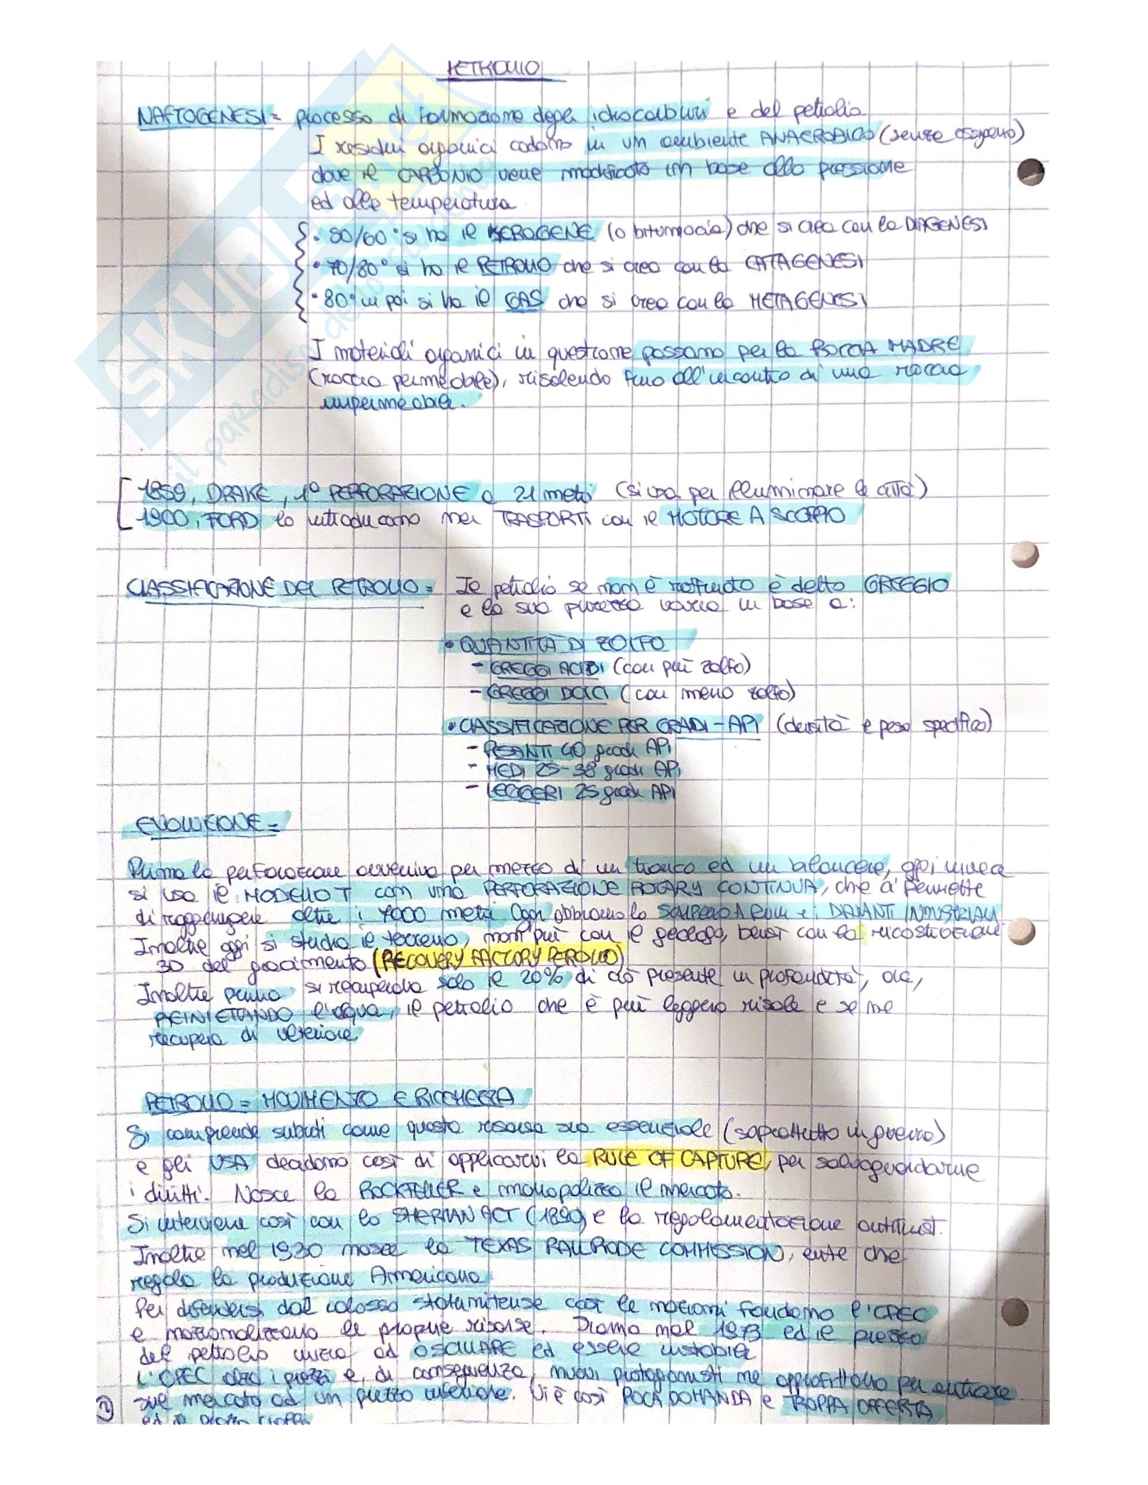 PETROLIO
NAFTOGENESI = processo di formazione degli idrocarburi e del petrolio
I residui organici cadono in un ambiente ANAEROBICO (senza ossigeno)
dove il CARBONIO viene modificato in base alla pressione
ed alla temperatura
• 50/60° si ha il KEROGENE (o bitumoccia) che si crea con la DIAGENESI
• 70/80° si ha il PETROLIO che si crea con la CATAGENESI
• 80° in poi si ha il GAS che si crea con la METAGENESI
I materiali organici in questione passano per la ROCCIA MADRE
(roccia permeabile), risalendo fino all'incontro di una roccia
impermeabile.
1859, DRAKE, 1° PERFORAZIONE a 21 metri (si usa per illuminare le città)
1900, FORD lo introducono nei TRASPORTI con il MOTORE A SCOPPIO
CLASSIFICAZIONE DEL PETROLIO = Il petrolio se non è raffinato è detto GREGGIO
e la sua purezza varia in base a:
• QUANTITÀ DI ZOLFO
- GREGGI ACIDI (con più zolfo)
- GREGGI DOLCI (con meno zolfo)
• CLASSIFICAZIONE PER GRADI-API (densità e peso specifico)
- PESANTI 40 gradi API
- MEDI 25-38 gradi API
- LEGGERI 25 gradi API
EVOLUZIONE =
Prima la perforazione avveniva per mezzo di un tronco ed un bilanciere, oggi invece
si usa il MODELLO T con una PERFORAZIONE ROTARY CONTINUA, che ci permette
di raggiungere oltre i 7000 metri Oggi abbiamo lo SCALPELLO A RULLI e i DIAMANTI INDUSTRIALI
Inoltre oggi si studia il terreno, non più con il geologo, bensì con la ricostruzione
3D del giacimento (RECOVERY FACTORY PETROLIO)
Inoltre prima si recuperava solo il 20% di ciò presente in profondità, ora,
REINIETTANDO l'acqua, il petrolio che è più leggero risale e se ne
recupera di ulteriore
PETROLIO = MOVIMENTO E RICCHEZZA
Si comprende subito come questa risorsa sia essenziale (soprattutto in guerra)
e gli USA decidono così di applicarvi la RULE OF CAPTURE, per salvaguardarne
i diritti. Nasce la ROCKFELLER e monopolizza il mercato.
Si interviene così con lo SHERMAN ACT (1890) e la regolamentazione antitrust.
Inoltre nel 1930 nasce la TEXAS RAILRODE COMMISSION, ente che
regola la produzione Americana
Per difendersi dal colosso statunitense così le nazioni fondano l'OPEC
e nazionalizzano le proprie risorse. Siamo nel 1973 ed il prezzo
del petrolio inizia ad OSCILLARE ed essere instabile
L'OPEC alza i prezzi e, di conseguenza, nuovi protagonisti ne approfittano per entrare
sul mercato ad un prezzo inferiore. Vi è così POCA DOMANDA e TROPPA OFFERTA
ed il prezzo
1
SKUOLA.net
il paradiso dello studente